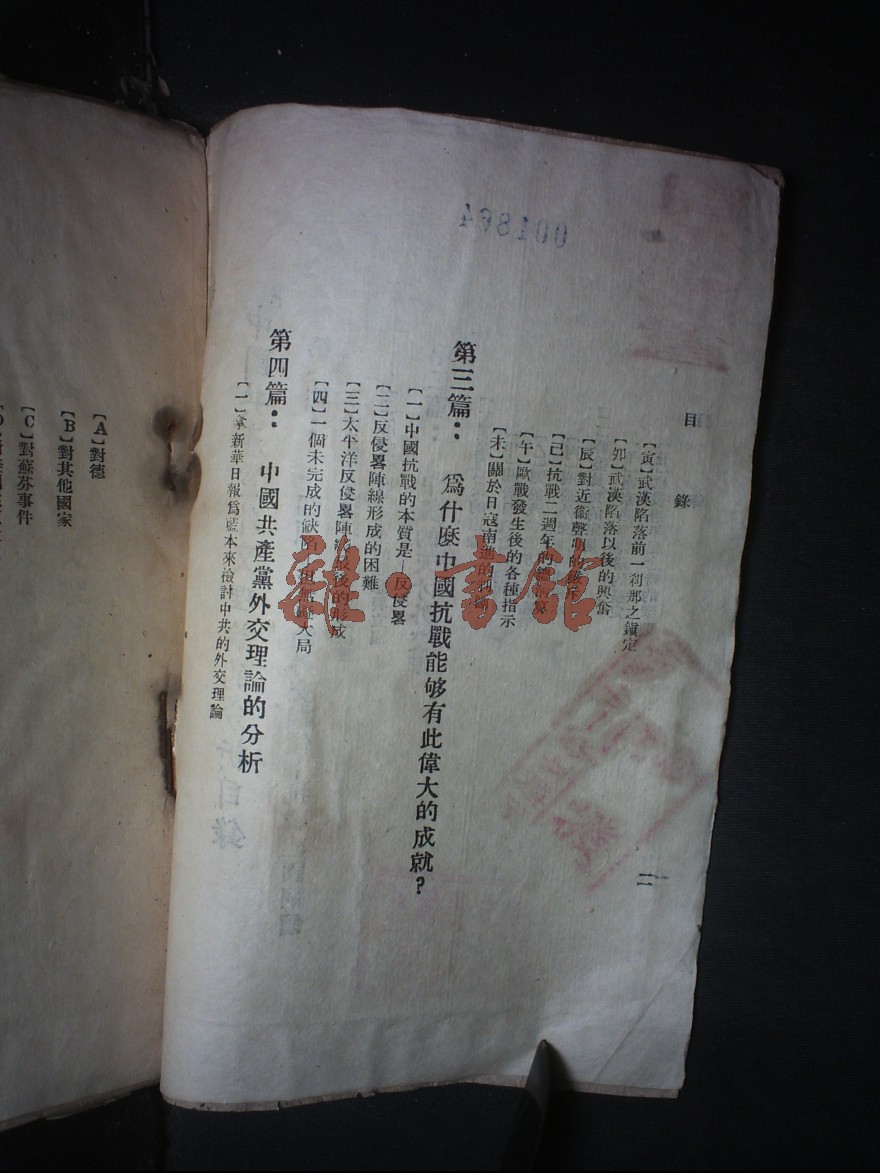 目錄
【寅】武漢陷落前一刹那之鎮定
【卯】武漢陷落以後的興奮
【辰】對近衞聲明的
【己】抗戰二週年的
【午】歐戰發生後的各種指示
【未】關於日寇南進的
第三篇：爲什麽中國抗戰能够有此偉大的成就？
【一】中國抗戰的本質是—反侵畧
【二】反侵畧陣線形成的困難
【三】太平洋反侵畧陣線最後的形成
【四】一個未完成的缺陷 大局
第四篇：中國共產黨外交理論的分析
【一】拿新華日報爲藍本來檢討中共的外交理論
二
001864
雜·書館
【A】對德
【B】對其他國家
【C】對蘇芬事件